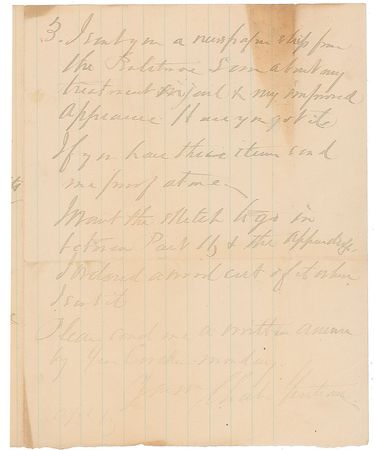 3. I sent you a newspaper slip from
the Baltimore Sun about my
treatment in jail & my improved
Appearance. Have you got it
If you have these items send
me proof at once.
I want the sketch to go in
between Part II & the Appendix.
I ordered a wood cut of it when
I sent it
Please send me a written answer
by Monday.